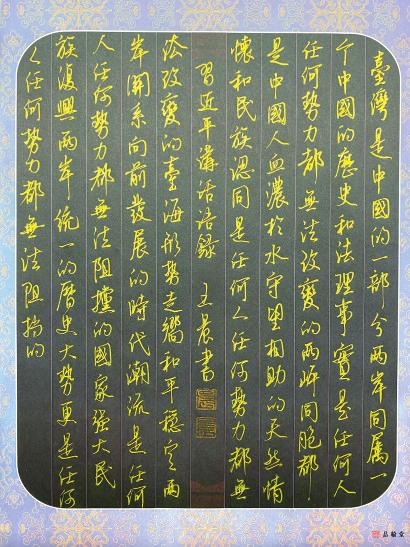 臺灣是中國的一部分兩岸同属一
个中國的歷史和法理事實是任何人
任何勢力都無法改變的兩岸同胞都
是中國人血濃於水守望相助的天然情
懷和民族認同是任何人任何勢力都無
習近平講話語錄 王晨書
法改變的臺海形勢走嚮和平穩定兩
岸關系向前發展的時代潮流是任何
人任何勢力都無法阻擋的國家強大民
族復興兩岸統一的曆史大勢更是任何
人任何勢力都無法阻挡的
品翰堂